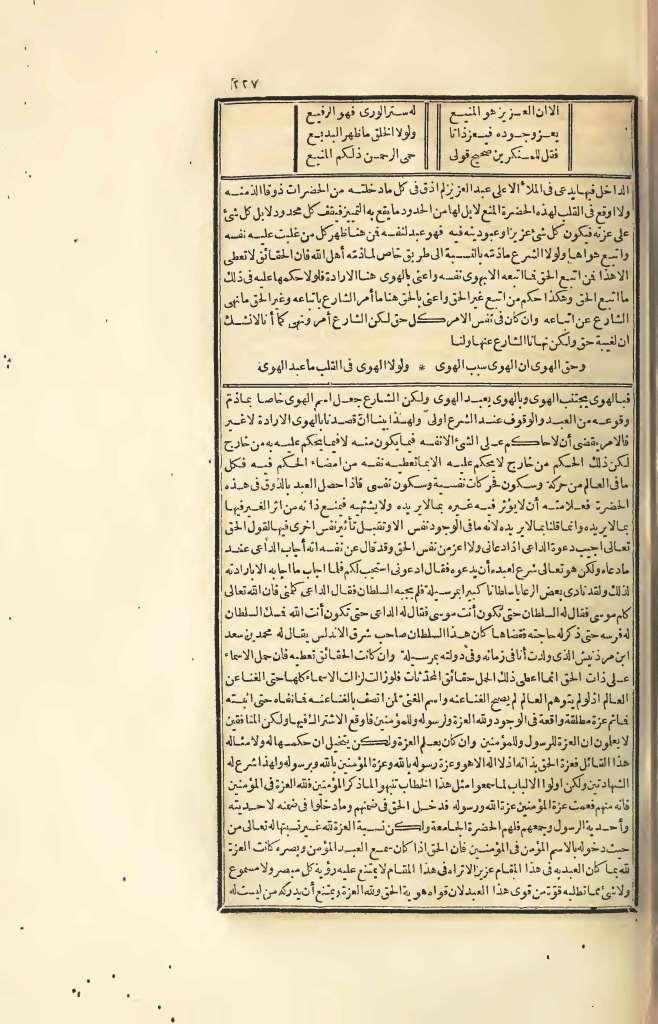 ٢٢٧
الا ان العزيز هو المنيع له ستر الورى فهو الرفيع
يعز وجوده فيعز ذاتا ولولا الخلق ما ظهر البديع
فقل للمنكرين صحيح قولى حمى الرحمن ذلكم المنيع
الداخل فيها يدعى فى الملأ الاعلى عبد العزيز لم اذق فى كل ما دخلته من الحضرات ذوقا ألذ منه
ولا اوقع فى القلب لهذه الحضرة المنع لا بل لها من الحدود ما يقع به التمييز فيقف كل محدود لا بل كل شئ
على عزته فيكون كل شئ عزيزا وعبوديته فيه فهو عبد لنفسه فمن هنا ظهر كل من غلبت عليه نفسه
واتبع هواها ولولا الشرع ما ذمته بالنسبة الى طريق خاص لما ذمته أهل الله فان الحقائق لا تعطى
الا هذا فمن اتبع الحق فما اتبعه الا بهوى نفسه واعنى بالهوى هنا الارادة فلولا حكمها عليه فى ذلك
ما اتبع الحق وهكذا حكم من اتبع غير الحق واعنى بالحق هنا ما أمر الشارع باتباعه وغير الحق ما نهى
الشارع عن اتباعه وان كان فى نفس الامر كل حق لكن الشارع أمر ونهى كما أنا لا نشك
ان لغيبة حق ولكن نهانا الشارع عنها ولنا
وحق الهوى ان الهوى سبب الهوى * ولولا الهوى فى القلب ما عبد الهوى
فبالهوى يجتنب الهوى وبالهوى يعبد الهوى ولكن الشارع جعل اسم الهوى خاصا بما ذم
وقوعه من العبد والوقوف عند الشرع اولى ولهذا بينا ان قصدنا بالهوى الارادة لا غير
فالامر يقضى أن لا حاكم على الشئ الا نفسه فيما يكون منه لا فيما يحكم عليه به من خارج
لكن ذلك الحكم من خارج لا يحكم عليه الا بما تعطيه نفسه من امضاء الحكم فيه فكل
ما فى العالم من حركة وسكون فحركات نفسية وسكون نفسى فاذا حصل العبد بالذوق فى هذه
الحضرة فعلامته أن لا يؤثر فيه غيره بما لا يريده ولا يشتهيه فيمنع ذاته من اثر الغير فيها
بما لا يريده وانما قلنا بما لا يريده لانه ما فى الوجود نفس الا وتقبل تأثير نفس اخرى فيها لقول الحق
تعالى اجيب دعوة الداعى اذا دعانى ولا اعز من نفس الحق وقد قال عن نفسه انه أجاب الداعى عند
ما دعاه ولكن هو تعالى شرع لعبده أن يدعوه فقال ادعونى استجب لكم فما اجاب ما اجابه الا بارادته
لذلك ولقد نادى بعض الرعايا سلطانا كبيرا بمرسية فلم يجبه السلطان فقال الداعى كلمنى فان الله تعالى
كلم موسى فقال له السلطان حتى تكون أنت موسى فقال له الداعى حتى تكون أنت الله فمسك السلطان
له فرسه حتى ذكر له حاجته فقضاها كان هذا السلطان صاحب شرق الاندلس يقال له محمد بن سعد
ابن مرذنيش الذى ولدت أنا فى زمانه وفى دولته بمرسية وان كانت الحقائق تعطيه فان حمل الاسماء
على ذات الحق انما اعطى ذلك الحمل حقائق المحدثات فلو زالت لزالت الاسماء كلها حتى الغنا عن
العالم اذ لو لم يتوهم العالم لم يصح الغنا عنه واسم الغنى لمن اتصف بالغنا عنه فما نفاه حتى اثبته
فما ثم عزة مطلقة واقعة فى الوجود ولله العزة ولرسوله وللمؤمنين فاوقع الاشتراك فيها ولكن المنافقين
لا يعلمون ان العزة للرسول وللمؤمنين وان كان يعلم العزة ولكن يتخيل ان حكمها له ولامثاله
هذا القائل فعزة الحق بذاته اذ لا اله الا هو وعزة رسوله بالله وعزة المؤمنين بالله وبرسوله ولهذا شرع له
الشهادتين ولكن اولوا الالباب لما سمعوا مثل هذا الخطاب تنبهوا لما ذكر المؤمنين فلله العزة فى المؤمنين
فانه منهم فعمت عزة المؤمنين عزة الله ورسوله فدخل الحق فى ضمنهم وما دخلوا فى ضمنه لاحديته
وأحدية الرسول وجمعهم فلهم الحضرة الجامعة ولكن نسبة العزة لله غير نسبتها له تعالى من
حيث دخوله بالاسم المؤمن فى المؤمنين فان الحق اذا كان سمع العبد المؤمن وبصره كانت العزة
لله بما كان العبد به فى هذا المقام عزيزا الا تراه فى هذا المقام لا يمتنع عليه رؤية كل مبصر ولا مسموع
ولا شئ مما تطلبه قوة من قوى هذا العبد لان قواه هوية الحق ولله العزة ويمتنع أن يدركه من ليست له